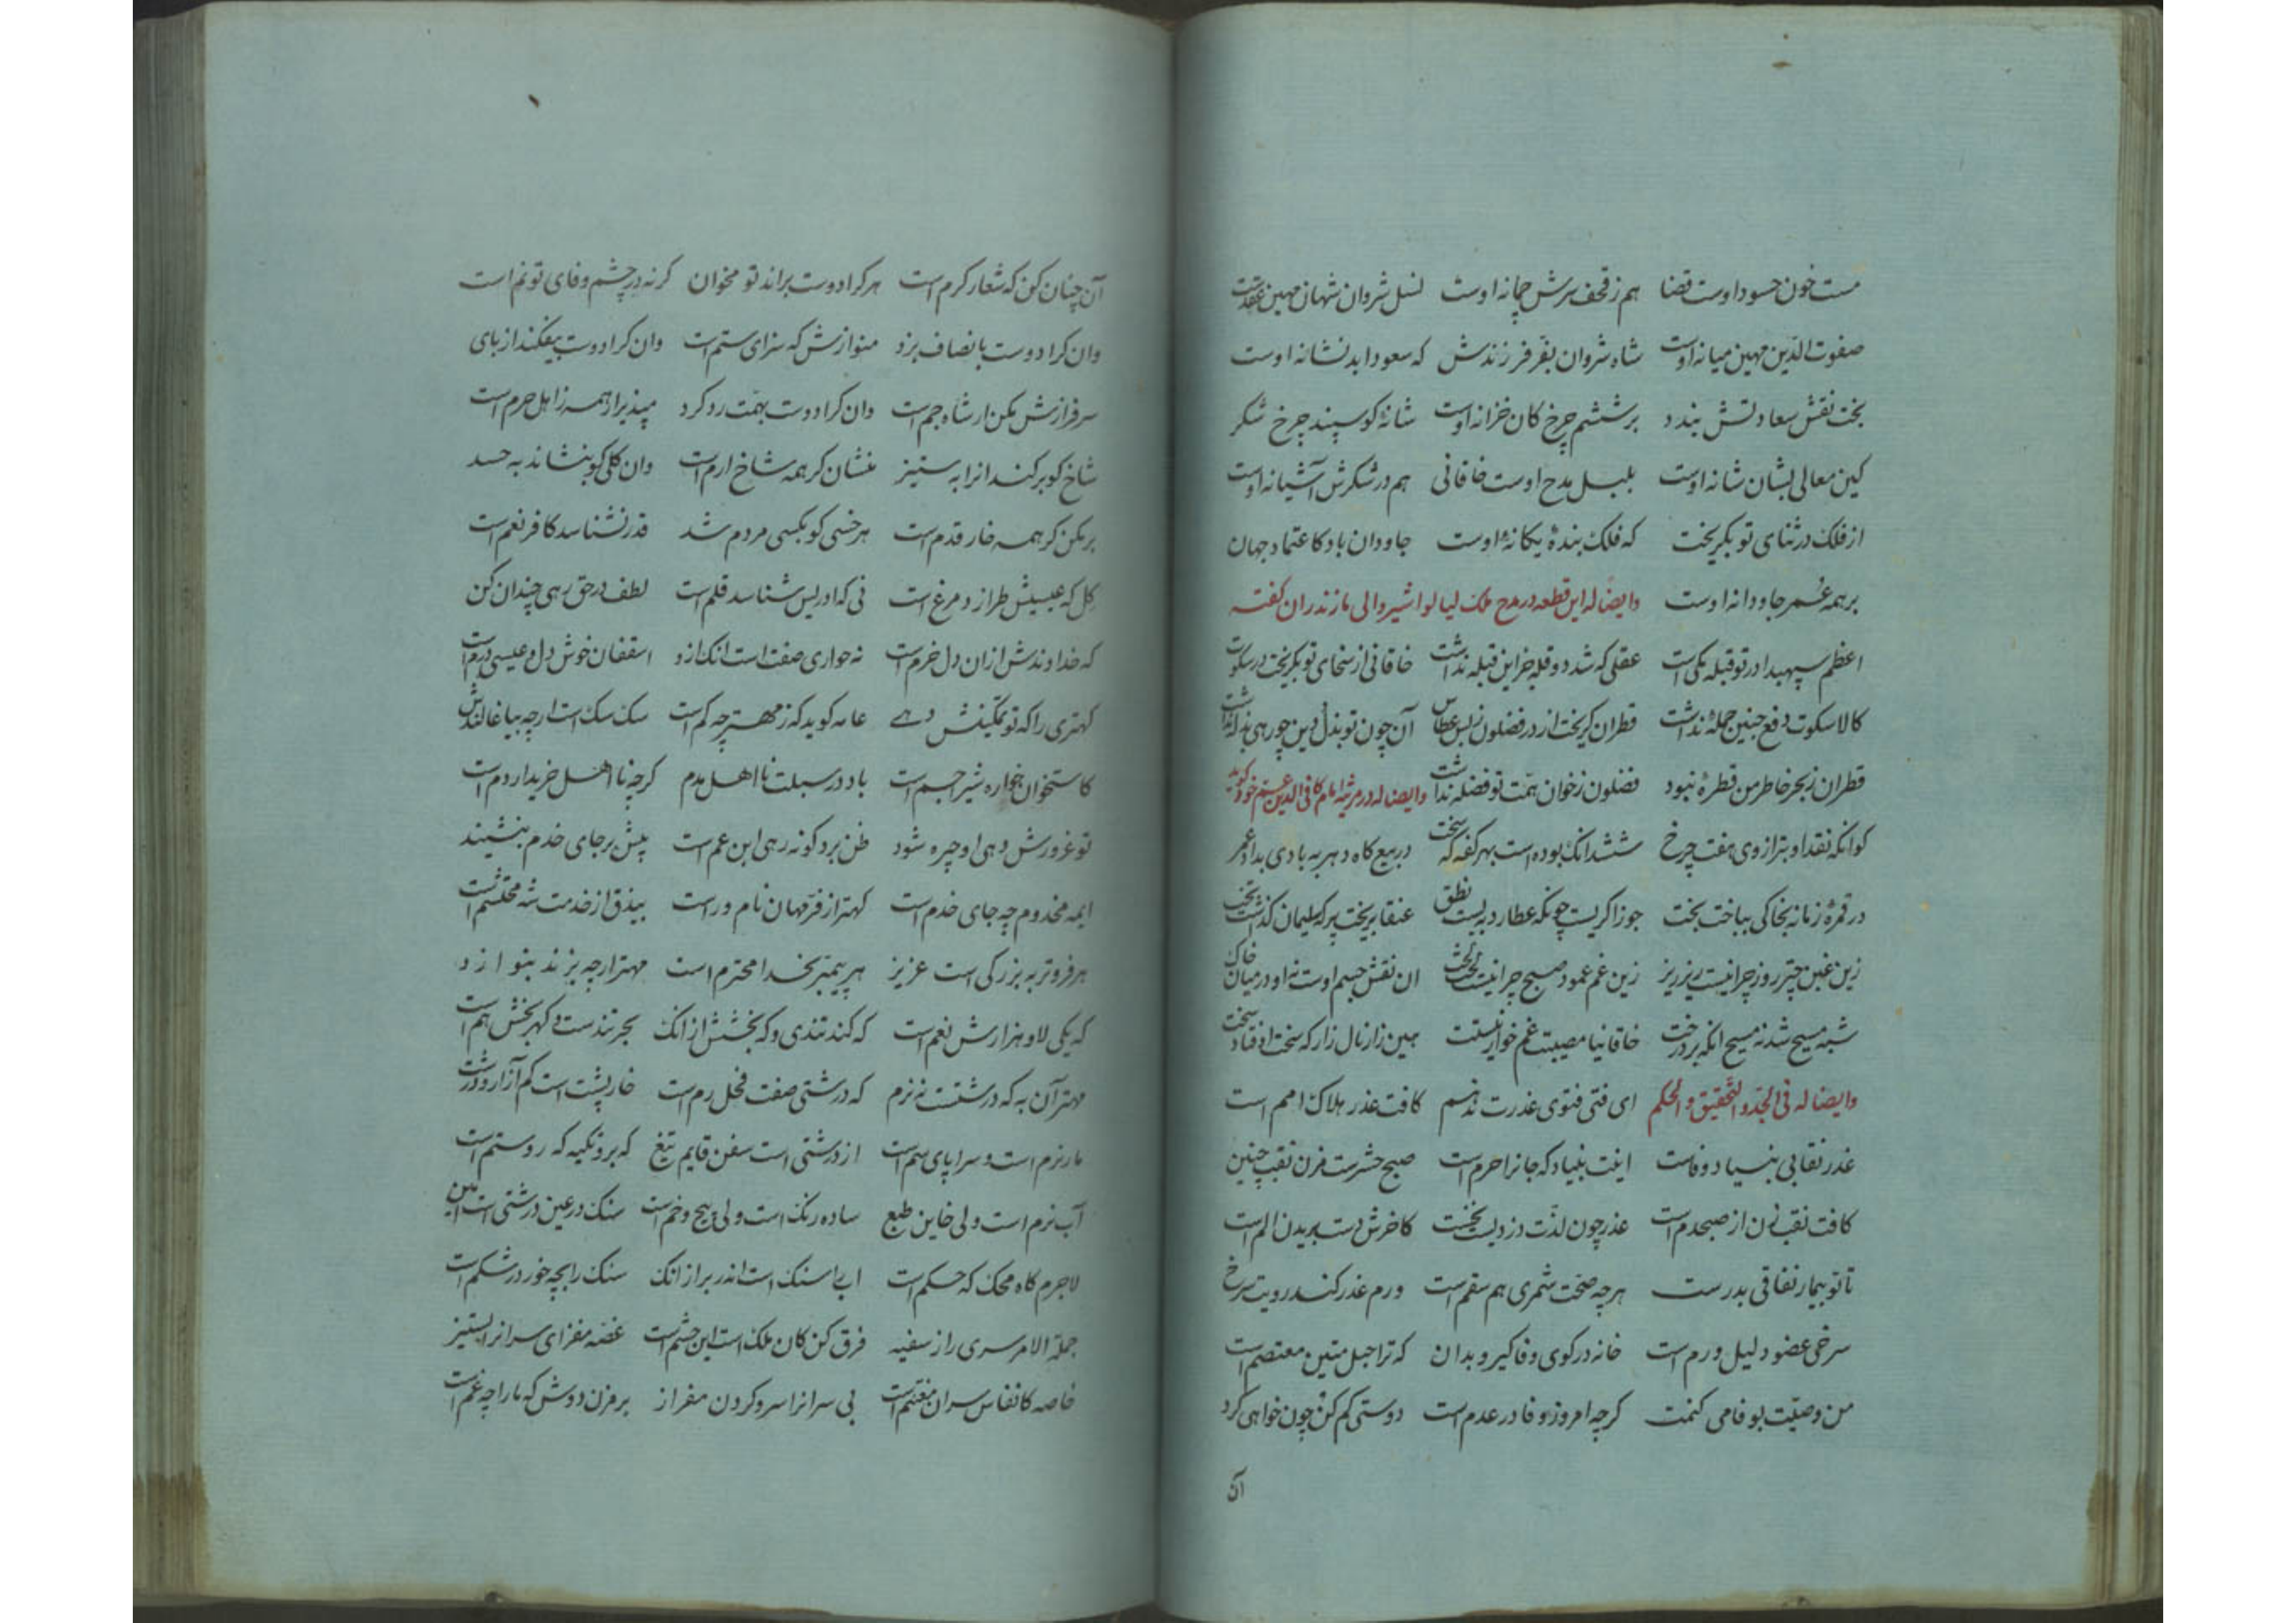 مست خون حسود اوست قضا هم ز قحف سرش چمانه اوست نسل شروان شهان مهین عقدست
صفوت الدین مهین میانه اوست شاه شروان بفر فرزندش که سعود ابد نشانه اوست
بخت نقش سعادتش بندد بر ششم چرخ کان خزانه اوست شانه کو سپند چرخ شکر
کین معالی بشان شانه اوست بلبل مدح اوست خاقانی هم در شکرش آشیانه اوست
از فلک در ثنای تو بگریخت که فلک بندهٔ یکانه اوست جاودان باد کاعتماد جهان
بر همه عمر جاودانه اوست وایضاً له این قطعه در مدح ملک لیالواشیر والی مازندران گفته
اعظم سپهبدا در تو قبله یکی است عقلی که شد دو قله جز این قبله نداشت خاقانی از سخای تو بگریخت در سکوت
کالا سکوت دفع چنین حمله نداشت قطران گریخت از در فضلون ز بس عطاش آن چون تو بذل وین چو رهی بذله نداشت
قطران ز بحر خاطر من قطرهٔ نبود فضلون ز خوان همت تو فضله نداشت وایضا له در مرثیه امام کافی الدین عم خود گوید
کو آنکه نقد او بترازوی هفت چرخ شش دانک بوده است بهر کفه که سخت در بیع کاه دهر به بادی بداد عمر
در قمرهٔ زمانه بخاکی بباخت بخت جوزا کریست چونکه عطارد ببست نطق عنقا بریخت پر که سلیمان گذاشت تخت
زین غبن چتر روز چرا نیست ریز ریز زین غم عمود صبح چرا نیست لخت لخت ان نقش جسم اوست نه او در میان خاک
شبه مسیح شد نه مسیح انکه بر درخت خاقانیا مصیبت عم خوار نیستت هین زار نال زار که سخت اوفتاد سخت
وایضا له فی الجد و التحقیق و الحکم ای فتی فتوی غدرت ندهم کافت غدر هلاک امم است
غدر نقابی بنیاد وفاست اینت بنیاد که جانرا حرم است صبح حشرست مزن نقب چنین
کافت نقب زن از صبحدم است غدر چون لذت دزدیست نخست کاخرش دست بریدن الم است
تا تو بیمار نفاقی بدرست هرچه صحت شمری هم سقم است ورم غدر کند رویت سرخ
سرخی عضو دلیل ورم است خانه در کوی وفا گیر و بدان که ترا حبل متین معتصم است
من وصیت بوفا می کنمت کرچه امروز وفا در عدم است دوستی کم کن چون خواهی کرد
آن
آن چنان کن که شعار کرم است هر کرا دوست براند تو مخوان کرنه در چشم وفای تو نم است
وان کرا دوست بانصاف بزد منوازش که سزای ستم است وان کرا دوست بیفکند از پای
سرفرازش مکن ار شاه جم است وان کرا دوست بهمت رد کرد مپذیر ار همه ز اهل حرم است
شاخ کو برکند انرا به ستیز منشان کر همه شاخ ارم است وان کلی کو بنشاند به حسد
بر مکن کر همه خار قدم است هر خسی کو بکسی مردم شد قدر نشناسد کافر نعم است
کل که عیسیش طرازد مرغ است نی که ادریس شناسد قلم است لطف در حق رهی چندان کن
که خداوندش ازان دل خرم است نه حواری صفت است انک ازو اسقفان خوش دل و عیسی دژم است
کهتری را که تو تمکینش دهی عامه کوید که ز مهتر چه کم است سک سک است ارچه بیاغالندش
کاستخوان خواره شیر اجم است باد در سبلت نااهل مدم کرچه نااهل خریدار دم است
تو غرورش دهی او چیره شود ظن برد کو نه رهی ابن عم است پیش بر جای خدم بنشیند
ایمه مخدوم چه جای خدم است کهتر از فر مهان نام ور است بیذق از خدمت شه محتشم است
هر فروتر به بزرکی است عزیز هر پیمبر بخدا محترم است مهتر ارچه بزند بنوازد
که یکی لا و هزارش نعم است که کند تندی و که بخشش از انک بحر تندست و کهر بخش هم است
مهتر آن به که درشتست نه نرم که درشتی صفت فحل رم است خارپشت است کم آزار و درشت
مار نرم است و سراپای سم است از درشتی است سفن قایم تیغ که برو تکیه که روستم است
آب نرم است ولی خاین طبع ساده رنک است ولی پیچ و خم است سنک در عین درشتی است امین
لاجرم کاه محک که حکم است ابا سنک است اندر بر از انک سنک را بچه خور در شکم است
جمله الامر سری را ز سفیه فرق کن کان ملک است این حشم است غصه مفزای سرانرا بستیز
خاصه کانفاس سران مغتنم است بی سرانرا سر و کردن مفراز برمزن دوش که ما را چه غم است